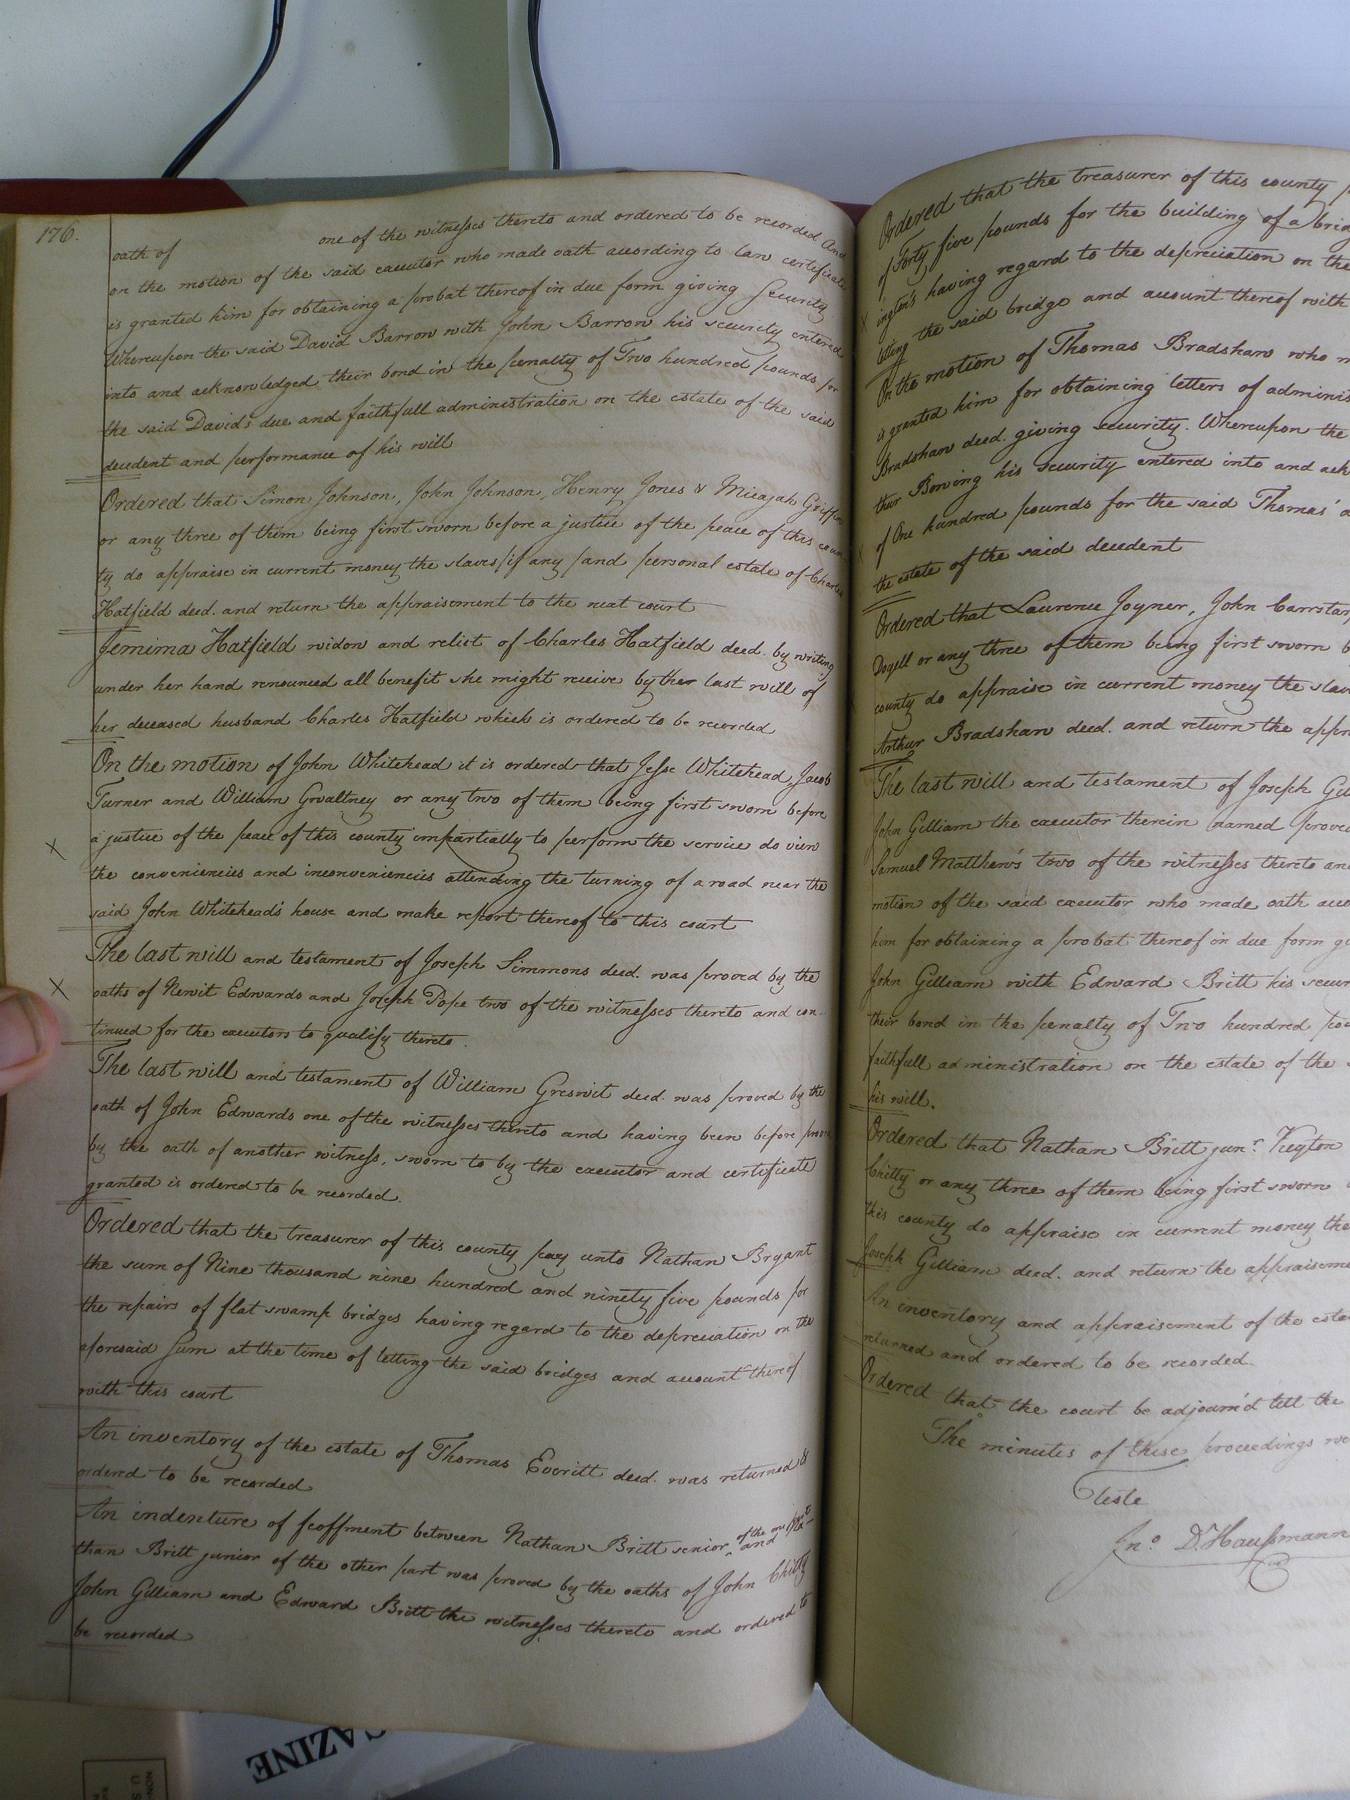 176.
oath of one of the witnesses thereto and ordered to be recorded and
on the motion of the said executor who made oath according to law certificate
is granted him for obtaining a probat thereof in due form giving Security.
Whereupon the said David Barrow with John Barrow his security entered
into and acknowledged their bond in the penalty of Two hundred pounds for
the said David's due and faithfull administration on the estate of the said
decedent and performance of his will
Ordered that Simon Johnson, John Johnson, Henry Jones & Micajah Griffin
or any three of them being first sworn before a justice of the peace of this coun
ty do appraise in current money the slaves (if any) and personal estate of Charles
Hatfield deed. and return the appraisement to the next court
Jemima Hatfield widow and relict of Charles Hatfield deed. by writing
under her hand renounced all benefit she might receive by the last will of
her deceased husband Charles Hatfield which is ordered to be recorded
On the motion of John Whitehead it is ordered that Jesse Whitehead Jacob
Turner and William Gwaltney or any two of them being first sworn before
a justice of the peace of this county impartially to perform the service do view
the conveniencies and inconveniencies attending the turning of a road near the
said John Whitehead's house and make report thereof to this court
The last will and testament of Joseph Simmons deed. was proved by the
oaths of Newit Edwards and Joseph Pope two of the witnesses thereto and con-
tinued for the executors to qualify thereto.
The last will and testament of William Greswit deed. was proved by the
oath of John Edwards one of the witnesses thereto and having been before proved
by the oath of another witness, sworn to by the executor and certificate
granted is ordered to be recorded.
Ordered that the treasurer of this county pay unto Nathan Bryant
the sum of Nine thousand nine hundred and ninety five pounds for
the repairs of flat swamp bridges having regard to the depreciation on the
aforesaid sum at the time of letting the said bridges and account thereof
with this court
An inventory of the estate of Thomas Everitt deed. was returned &
ordered to be recorded
An indenture of feoffment between Nathan Britt senior of the one part and Na-
than Britt junior of the other part was proved by the oaths of John Chitty
John Gilliam and Edward Britt the witnesses thereto and ordered to
be recorded
Ordered that the treasurer of this county
of Forty five pounds for the building of a
having regard to the depreciation on the
letting the said bridge and account thereof with
On the motion of Thomas Bradshaw who
is granted him for obtaining letters of
Bradshaw deed. giving security. Whereupon the
thur Bowing his Security entered into and
of One hundred pounds for the said Thomas'
the estate of the said decedent
Ordered that Laurence Joyner, John
Doyell or any three of them being first sworn
county do appraise in current money the
Arthur Bradshaw deed. and return the
The last will and testament of Joseph
John Gilliam the executor therein named proved
Samuel Matthews two of the witnesses thereto
motion of the said executor who made oath
him for obtaining a probat thereof in due form
John Gilliam with Edward Britt his
their bond in the penalty of Two hundred
faithfull administration on the estate of the
his will.
Ordered that Nathan Britt junr.
Chitty or any three of them being first sworn
this county do appraise in current money the
Joseph Gilliam deed. and return the
An inventory and appraisement of the
returned and ordered to be recorded.
Ordered that the court be adjourn'd till the
The minutes of these proceedings
Teste
Jno. D. Haussmann